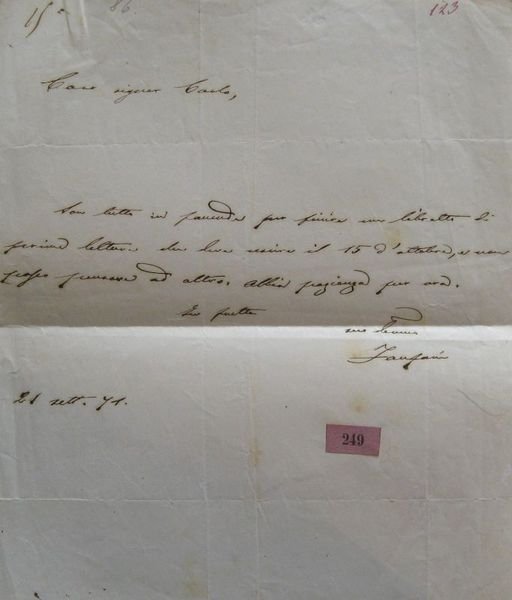 15°
86.
123
Caro signor Carlo,
Son tutto in faccende per finire un libretto di
prima lettura che deve uscire il 15 d'ottobre, e non
posso pensare ad altro. Abbia pazienza per ora.
In fretta
suo
21 sett. 71.
249